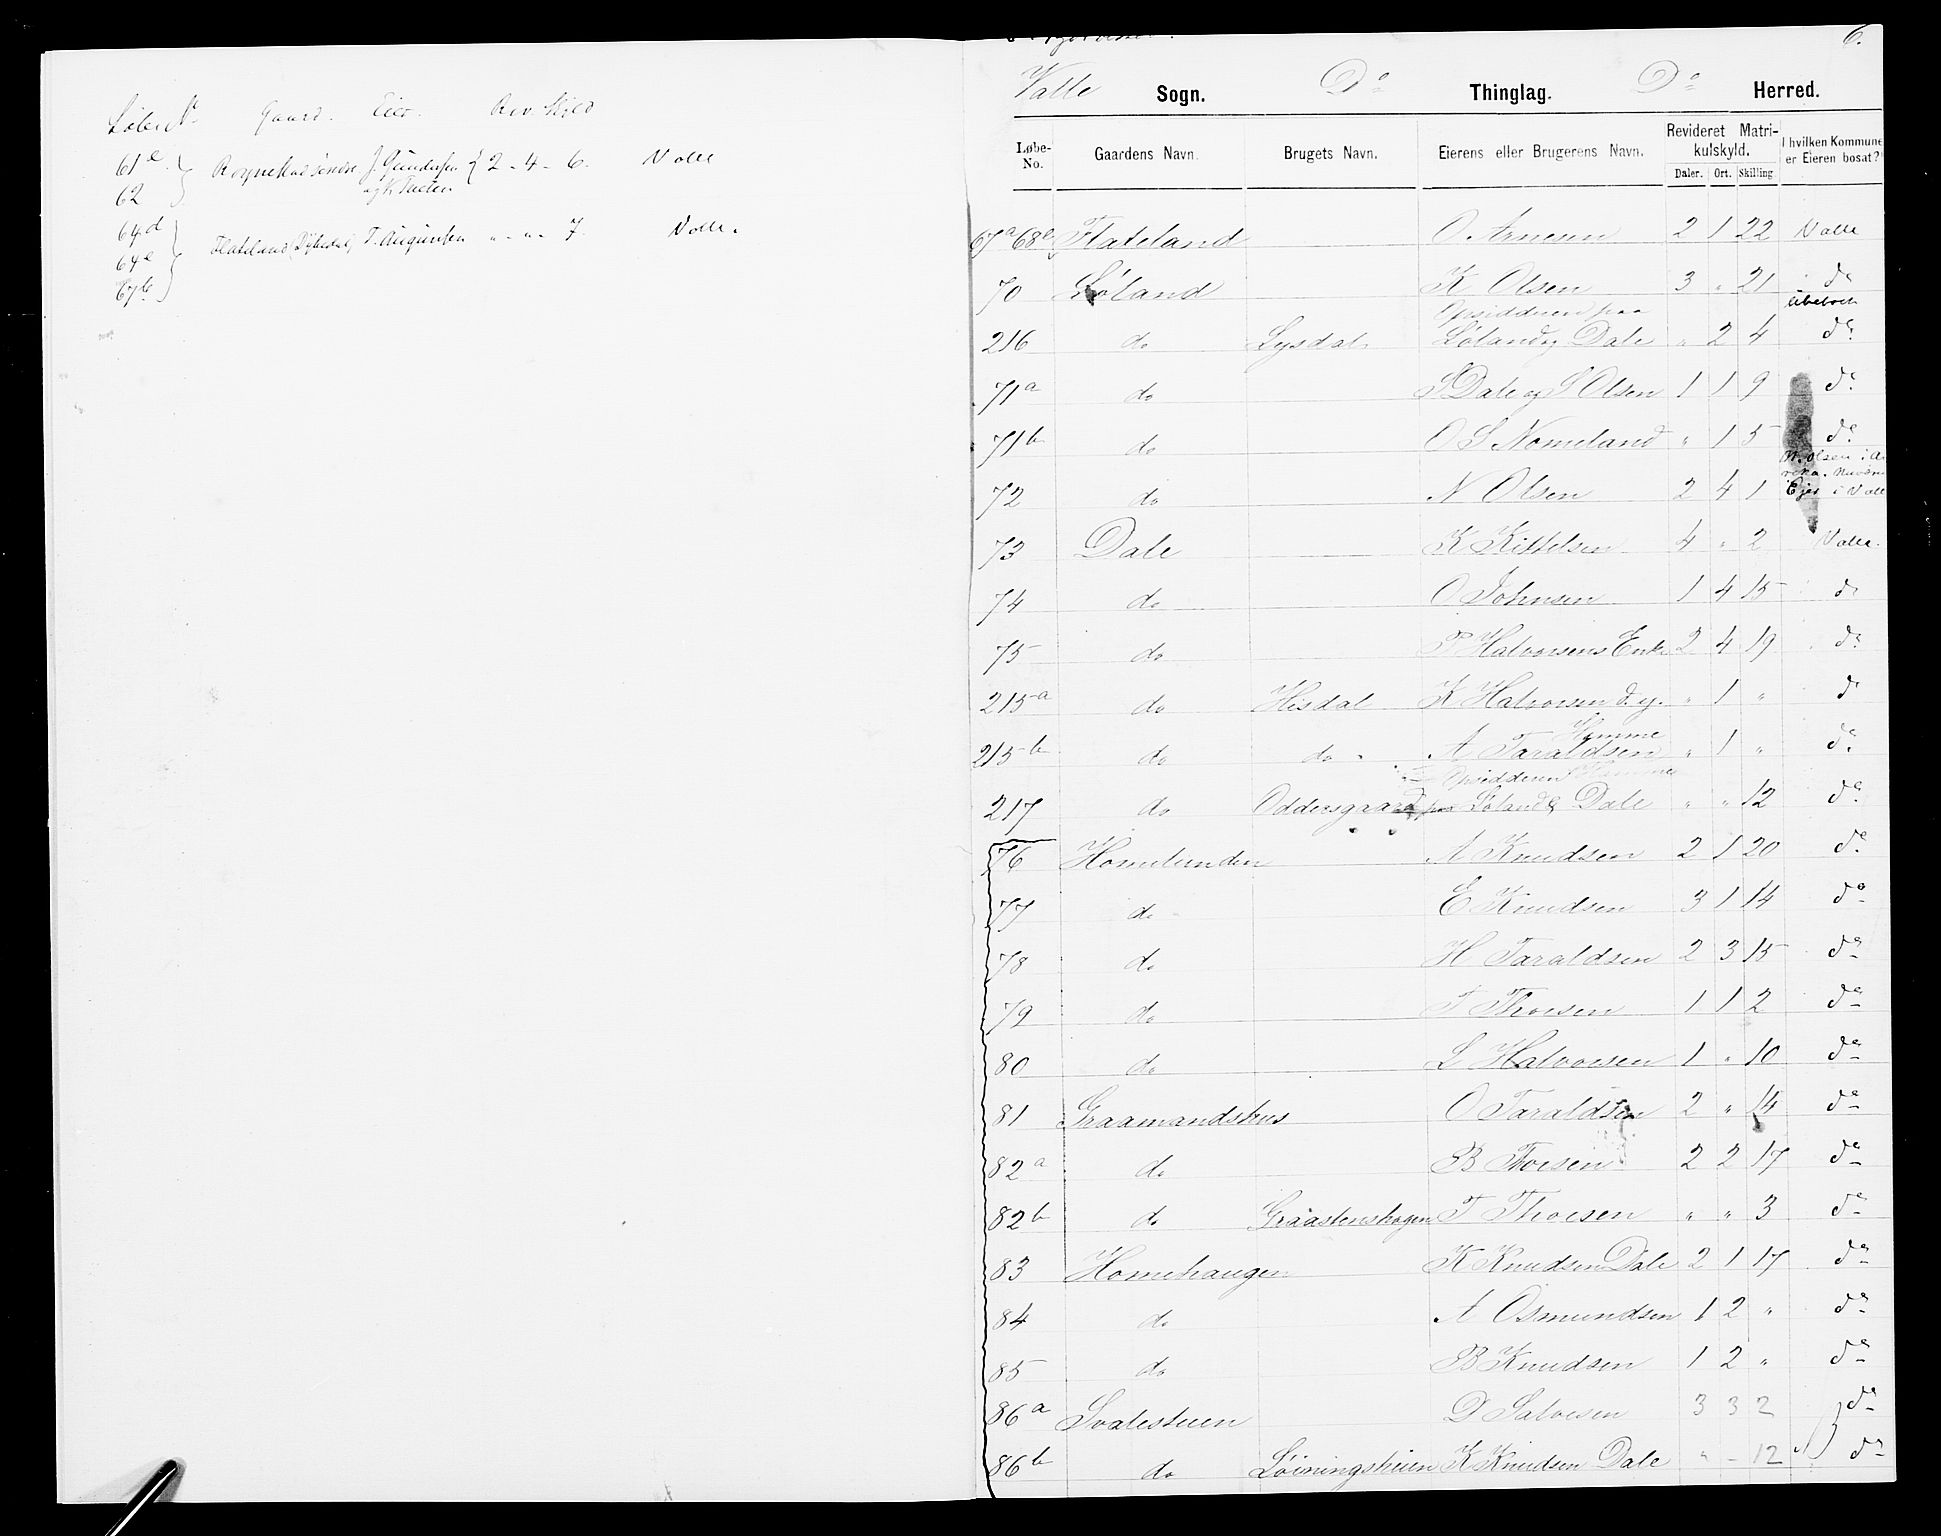 Løbe No Gaard. Eier. Rev. Skyld
61e
62 Rognehus søndre J. Gundersen og K. Tveten 2 - 4 - 6. Valle
64d
64e Flateland (Dybedal) T. Augunsen " - " - 7. Valle.
67b
6.
Valle Sogn. Do Thinglag. Do Herred.
Løbe-No. Gaardens Navn. Brugets Navn. Eierens eller Brugerens Navn. Revideret Matrikulskyld. Daler. Ort. Skilling. I hvilken Kommune er Eieren bosat?
67a 68e Flateland O. Arnesen 2 1 22 Valle
70 Løland K Olsen 3 " 21 do
Opsidderne paa
216 do Lysdal Løland og Dale " 2 4 do
71a do S Dale og S Olsen 1 1 9 do
71b do O S Nomeland " 1 5 do
72 do N Olsen 2 4 1 N. Olsen i Ejer i Valle
73 Dale K Kittelsen 4 " 2 Valle.
74 do O Johnsen 1 4 15 do
75 do P Halvorsens Enke 2 4 19 do
215a do Hisdal K Halvorsen d. y. " 1 " do
Homme
215b do do A Taraldsen " 1 " do
Opsidderne
217 do Oddersgaard paa Løland & Dale " " 12 do
76 Homelunden A Knudsen 2 1 20 do
77 do E Knudsen 3 1 14 do
78 do H Taraldsen 2 3 15 do
79 do T Thorsen 1 1 2 do
80 do L Halvorsen 1 " 10 do
81 Graamandshus O Taraldsen 2 " 14 do
82a do B Torsen 2 2 17 do
82b do Graastenshagen T Thorsen " " 3 do
83 Homehaugen K Knudsen Dale 2 1 17 do
84 do A Osmundsen 1 2 " do
85 do B Knudsen 1 2 " do
86a Svalestuen D Salvesen 3 3 2 do
86b do Løiningsheien K Knudsen Dale " - 12 do